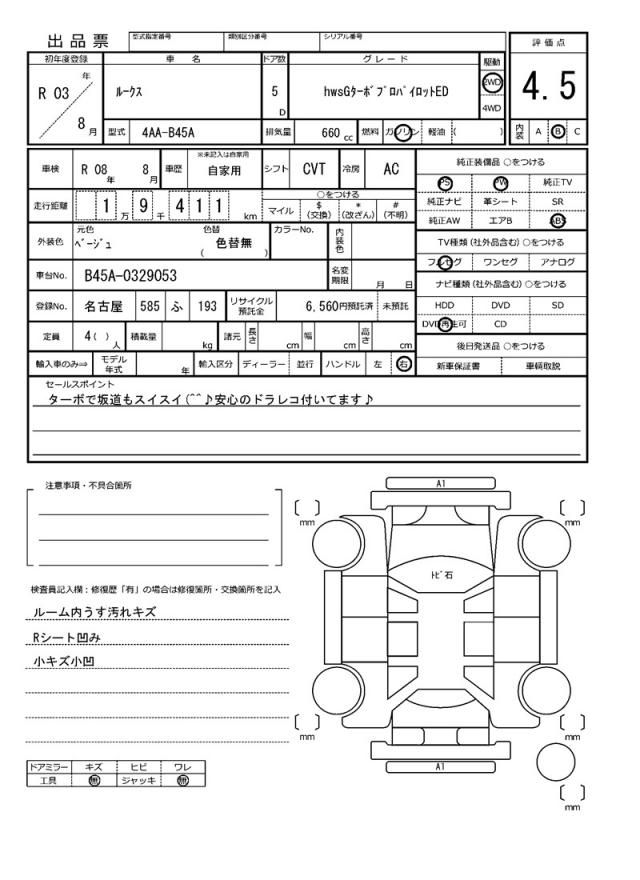 出品票
型式指定番号
類別区分番号
シリアル番号
評価点
4.5
初年度登録
車名
ドア数
グレード
駆動
R 03 年
8 月
ルークス
5 D
hwsGターボプロパイロットED
2WD
4WD
型式
4AA-B45A
排気量
660 cc
燃料
ガソリン
軽油
( )
内装
A
B
C
車検
R 08 年 8 月
車歴
※未記入は自家用
自家用
シフト
CVT
冷房
AC
純正装備品 ○をつける
PS
PW
純正TV
走行距離
1 万 9 千 4 1 1 km
○をつける
マイル
$ (交換)
* (改ざん)
# (不明)
純正ナビ
革シート
SR
純正AW
エアB
ABS
外装色
元色
ベージュ
色替
( 色替無 )
カラーNo.
内装色
TV種類 (社外品含む) ○をつける
フルセグ
ワンセグ
アナログ
車台No.
B45A-0329053
名変期限
月 日
ナビ種類 (社外品含む) ○をつける
HDD
DVD
SD
登録No.
名古屋
585
ふ
193
リサイクル預託金
6,560円預託済
未預託
DVD再生可
CD
定員
4( ) 人
積載量
kg
諸元
長さ
cm
幅
cm
高さ
cm
後日発送品 ○をつける
輸入車のみ⇒
モデル年式
年
輸入区分
ディーラー
並行
ハンドル
左
右
新車保証書
車輌取説
セールスポイント
ターボで坂道もスイスイ(^^♪安心のドラレコ付いてます♪
注意事項・不具合箇所
検査員記入欄：修復歴「有」の場合は修復箇所・交換箇所を記入
ルーム内うす汚れキズ
Rシート凹み
小キズ小凹
ドアミラー
キズ
ヒビ
ワレ
工具
無
ジャッキ
無
A1
mm
mm
トビ石
mm
mm
A1
mm